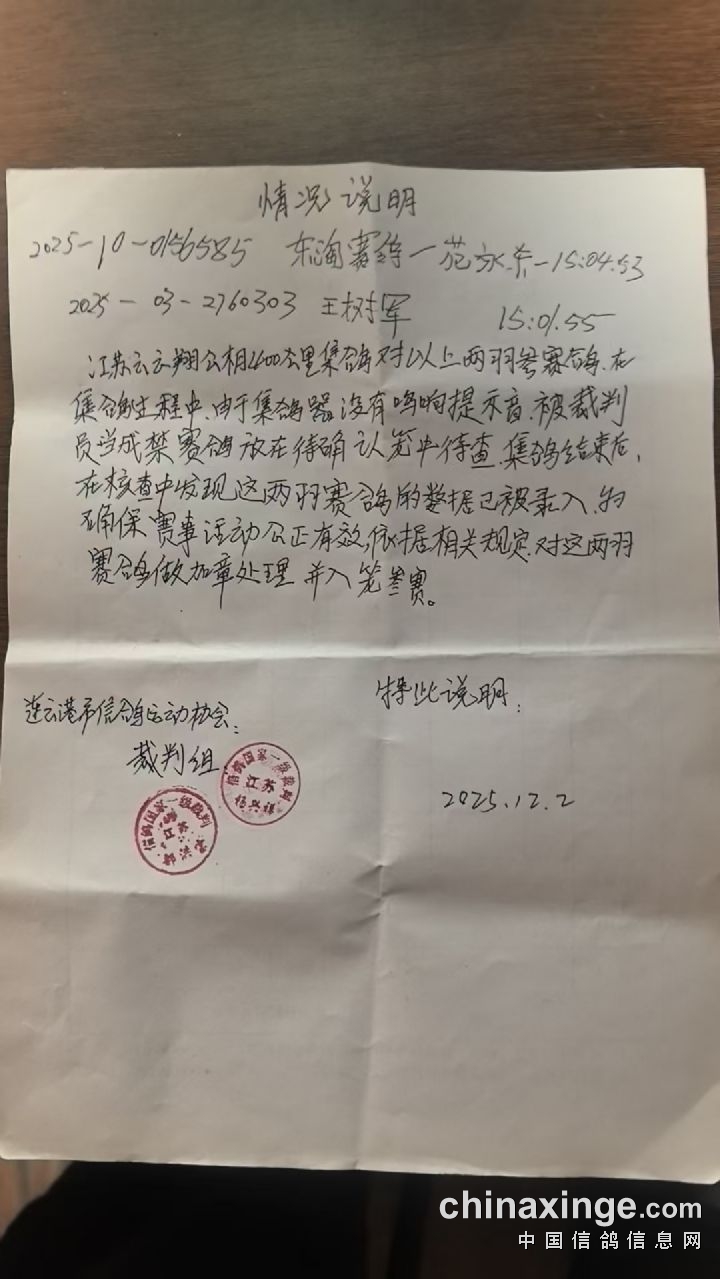 情况说明
2025-10-0156585 东海赛鸽-范永杰-15:04.53
2025-03-2760303 王树军 15:01.55
江苏云云翔公棚400公里集鸽对以上两羽参赛鸽.在
集鸽过程中.由于集鸽器没有鸣响提示音.被裁判
员当成禁赛鸽放在待确认笼中待查.集鸽结束后,
在核查中发现这两羽赛鸽的数据已被录入.为
确保赛事活动公正有效,依据相关规定.对这两羽
赛鸽做加章处理并入笼参赛。
特此说明:
连云港市信鸽运动协会:
裁判组
2025.12.2
信鸽国家一级裁判
江苏
杨兴祥
信鸽国家一级裁判
江苏
chinaxinge.com
中国信鸽信息网